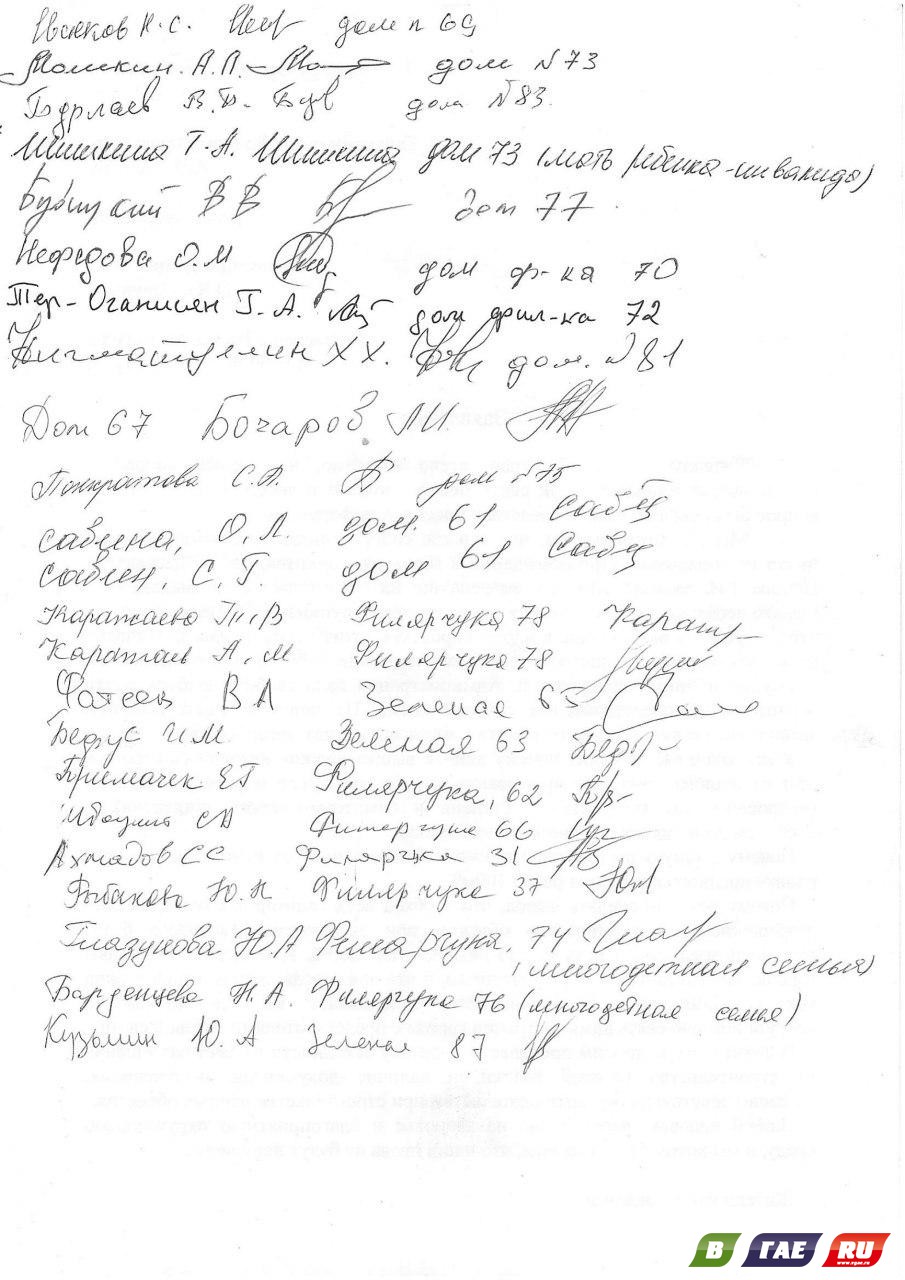 дом 69
Мошкин А.П. дом №73
Бурлаев В.В. Бур дом №83.
Шишкина Т.А. Шишкина дом 73 (мать ребенка-инвалида)
В В дом 77
Нефедова О.М дом ф-ка 70
Тер-Оганисян Г.А. дом фил-ка 72
Нигматуллин Х Х. дом. №81
Дом 67 Бочаров ЛИ
Панкратова С.А. дом №75
сабина, О, Л дом. 61
сабин С, Г. дом 61
Каратаева Т.В Филярчука 78 Карат
Каратаев А, М Филярчука 78
В А Зеленая 65
Бедус И.М. Зелёная 63 Бед
Примачек ЕГ Филярчука, 62
66
Ахмадов С С Филярчука 31
Рыбакова Ю.Н Филярчука 37
Глазунова Ю.А Филярчука, 74 Глаз
(многодетная семья)
Барденцева Н.А. Филярчука 76 (многодетная семья)
Кузьмин Ю. А Зеленая 87
В ГАЕ RU
www.vgae.ru